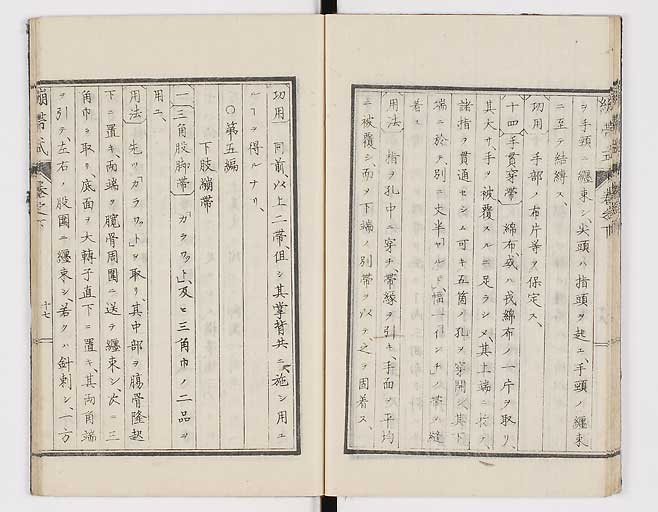 ヲ手頸ニ纏束シ、尖頭ハ指頭ヲ起エ、手頸ノ纏束
ニ至テ結縛ス、
功用 手部ノ布片等ヲ保定ス、
十四 手貫穿帶 綿布、或ハ我綿布ノ一片ヲ取リ、
其大サ、手ヲ被覆スルニ足ラシメ、其上端ニ於テ、
諸指ヲ貫通セシム可キ五箇ノ孔ヲ穿開シ、其下
端ニ於テ、別ニ丈半「ヱルレ」幅一「インチ」ノ帶ヲ縫
著ス、
用法 指ヲ孔中ニ穿チ、帶緣ヲ引キ、手面ヲ平均
ニ被覆シ、而ヲ下端ノ別帶ヲ以テ之ヲ固着ス、
功用 同前、以上二帶、但シ其掌背共ニ施シ用ユ
ルヿヲ得ルナリ、
〇第五編
下肢繃帶
一 三角股脚帶 「カラワット」及ヒ三角巾ノ二品ヲ
用ユ、
用法 先ツ「カラワット」ヲ取リ、其中部ヲ腸骨隆起
下ニ置キ、兩端ヲ臗骨周圍ニ送テ纏束シ、次ニ三
角巾ヲ取リ、底面ヲ大轉子直下ニ置キ、其兩角端
ヲ引テ左右ノ股圍ニ纏束シ若クハ針刺シ、一方
繃帶式 卷之下 十七